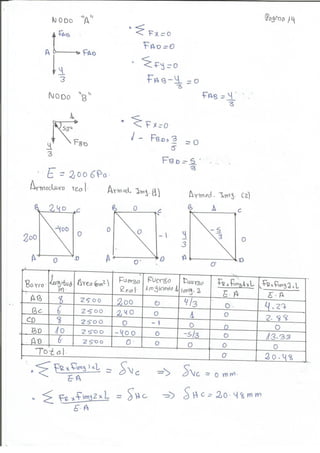 Pagina 14
NODO "A"
FAB
A
FAD
4
3
Σ Fx=0
FAD=0
Σ Fy=0
FAB-4/3=0
FAB=4/3
NODO "B"
1
53°
4
3
FBD
Σ Fx=0
1- FBD.3/5=0
FBD=5/3
E=200 GPa
Armadura real
Armad. Img (1)
Armad. Img (2)
B 240 C
200 -400 0
A 0 D
B 0 C
0 0 -1
A 0 D
B 1 C
4/3 -5/3 0
A 0 D
Barra Longitud m Area (mm²) Fuerza Real Fuerza Imginaria 1 Fuerza Img. 2 FR x Fimg1xL / E.A FR x Fimg2.L / E.A
AB 8 2500 200 0 4/3 0 4.27
BC 6 2500 240 0 1 0 2.88
CD 8 2500 0 -1 0 0 0
BD 10 2500 -400 0 -5/3 0 13.33
AD 6 2500 0 0 0 0 0
Total 0 20.48
Σ FR x Fimg1xL / EA = δVc => δVc = 0 mm
Σ FR x Fimg2xL / E.A = δHc => δHc = 20.48 mm